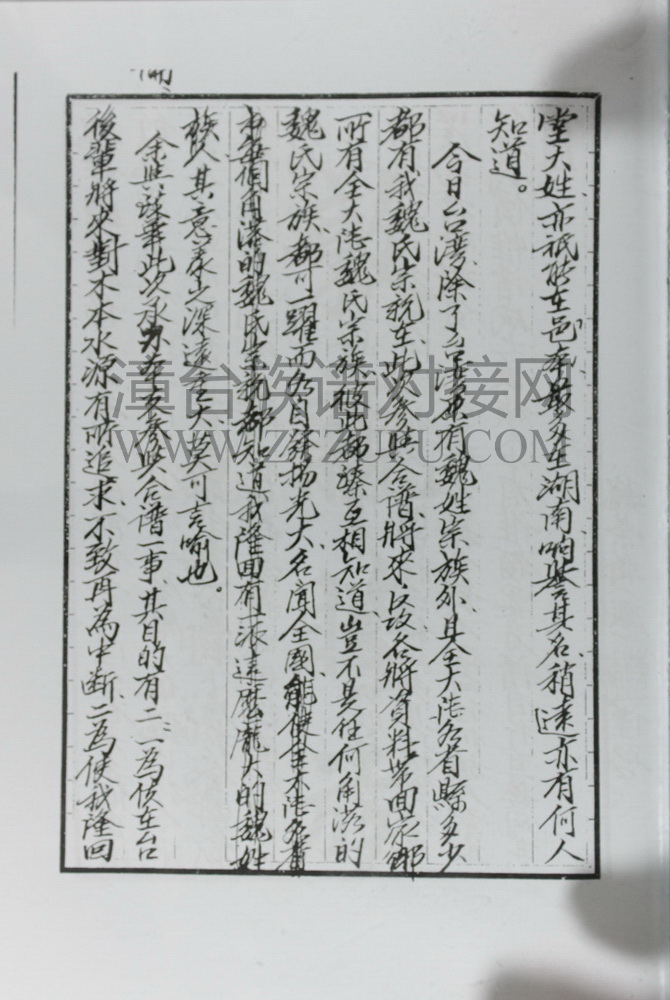 堂大姓、亦祗能在邑奉最多在湖南响譽其名、稍遠亦有何人
知道。
今日台湾、除了台湾原有魏姓宗族外、且全大陸各省縣多少
都有我魏氏宗親在、此次參與合譜、將來以後各將資料带回家鄉
所有全大陸魏氏宗族、彼此都臻互相知道、豈不是任何角落的
魏氏宗族、都可一躍而各自發揚光大、名聞全國、能使全大陸各省
市每個角落的魏氏宗親都知道、我隆回有一派這麼龐大的魏姓
族人、其意義之深遠重大、莫可言喻也。
余與詠華此次承办本支參與合譜一事、其目的有二、一為使在台
後輩將來對木本水源有所追求、不致再為中断、二為使我隆回
漳台族谱对接网
WWW.ZTZUPU.COM